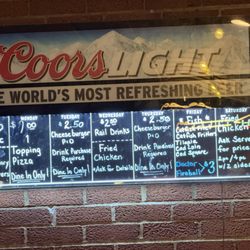 Coors LIGHT
E WORLD'S MOST REFRESHING BEER
MONDAY
Topping
Pizza
Dine In Only!
TUESDAY
$2.50
Cheeseburger
P+O
Drink Purchase
Required
Dine In Only!
WEDNESDAY
$2.00
Rail Drinks
Fried
Chicken
*Ask for Details
THURSDAY
$2.50
Cheeseburger
P+O
Drink Purchase
Required
Dine In Only!
FRIDAY
Fish
Tilapia
Cod
Doctor $3
Fireball
SATURDAY
Fried
Chicken